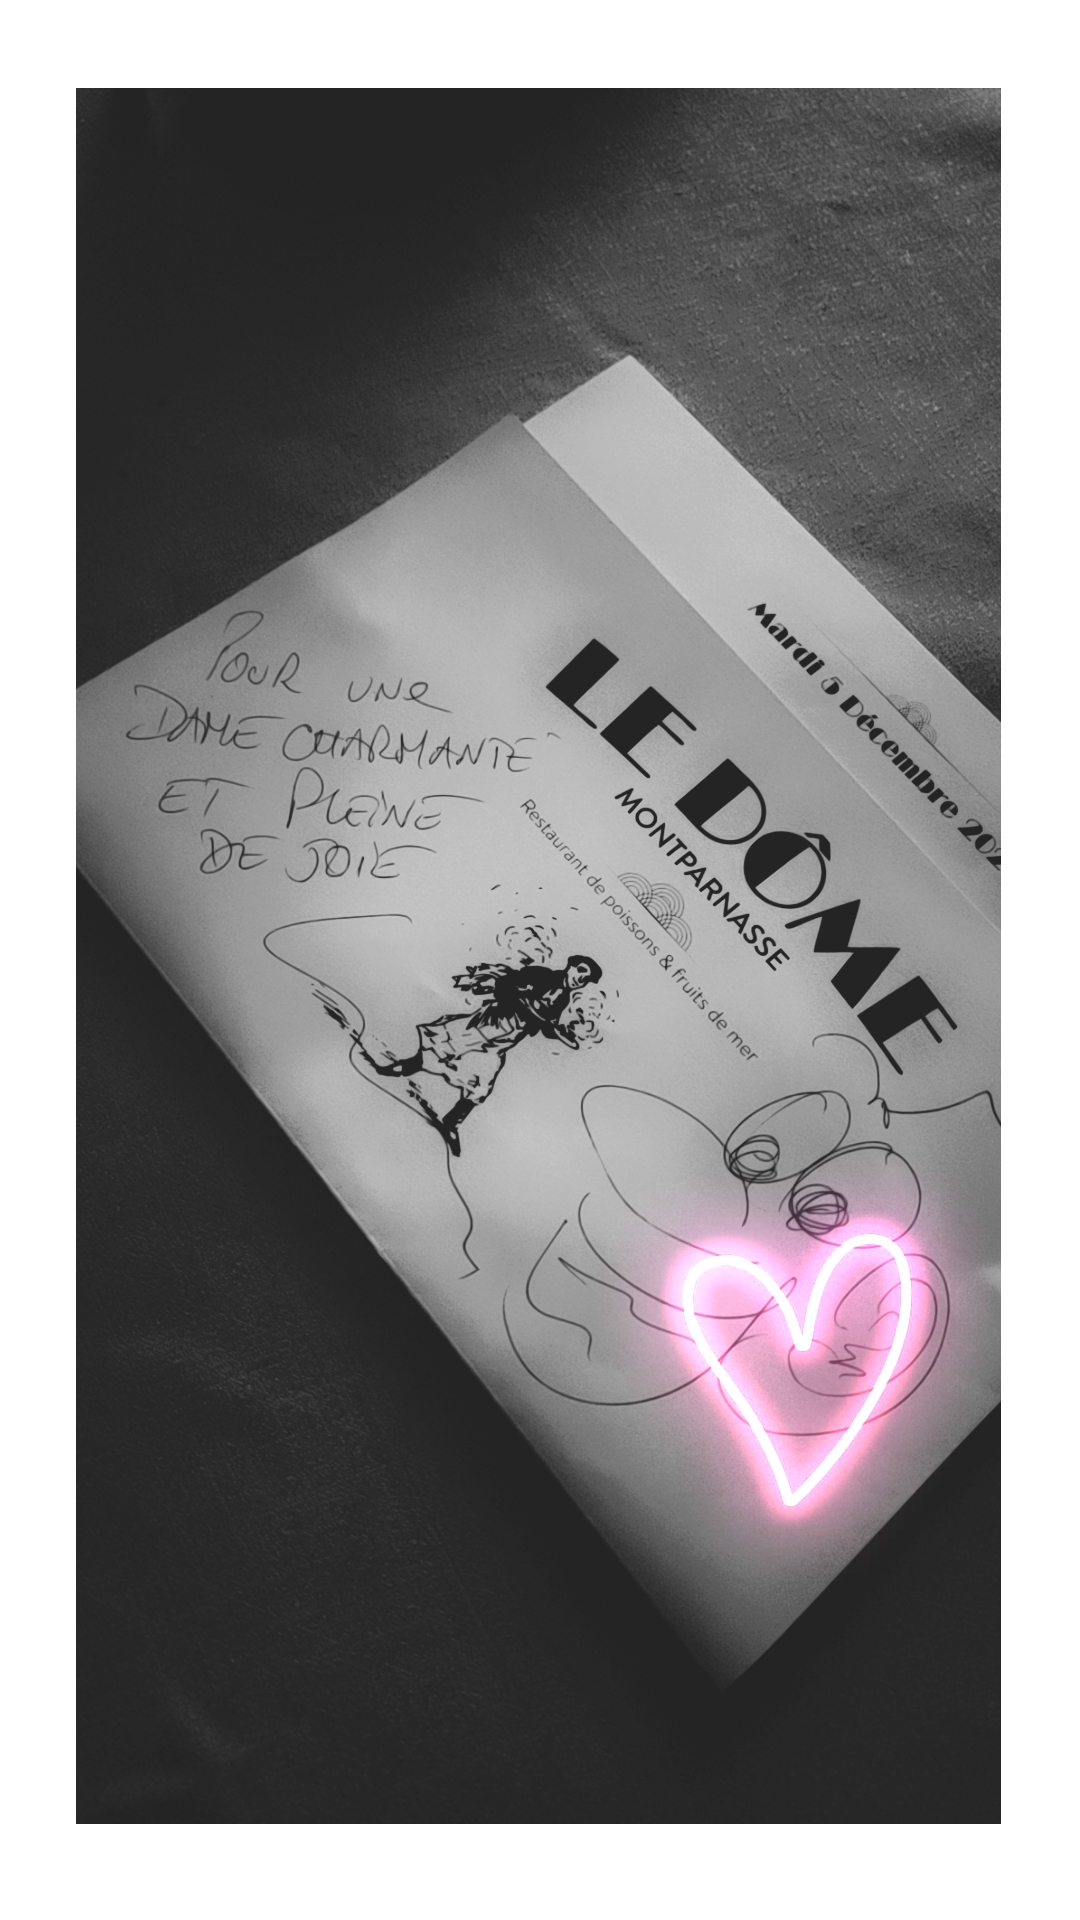 POUR UNE
DAME CHARMANTE
ET PLEINE
DE JOIE
LE DÔME
MONTPARNASSE
Restaurant de poissons & fruits de mer
Mardi 5 Décembre 202